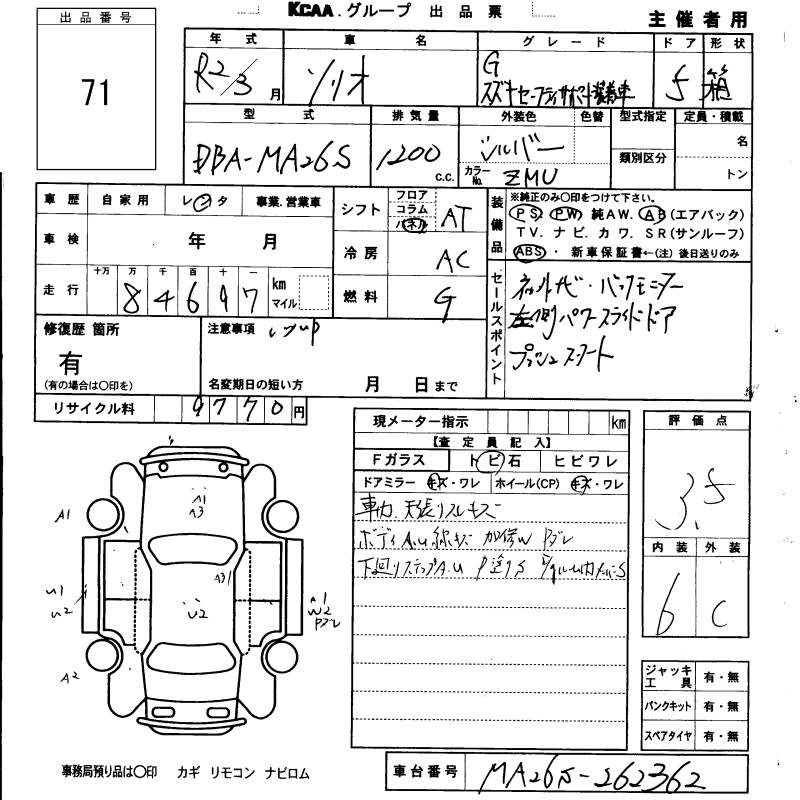 KCAA.グループ 出品票
主催者用
出品番号
71
年式 車名 グレード ドア 形状
R2/3月 ソリオ G 5 箱
スズキセーフティサポート装着車
型式 排気量 外装色 色替 型式指定 定員・積載
DBA-MA26S 1200 c.c. シルバー 名
カラーNo. ZMU 類別区分 トン
車歴 自家用 レンタ 事業.営業車
車検 年 月
走行 十万 万 千 百 十 一 km マイル
8 4 6 9 7
シフト フロア コラム パネル AT
冷房 AC
燃料 G
装備品
※純正のみ○印をつけて下さい。
PS PW 純AW. AB(エアバック)
TV. ナビ. カワ. SR(サンルーフ)
ABS ・ 新車保証書←(注)後日送りのみ
セールスポイント
バックモニター
左側パワースライドドア
プッシュスタート
修復歴 箇所
有
(有の場合は○印を)
注意事項
名変期日の短い方 月 日まで
リサイクル料 9 7 7 0 円
現メーター指示 km
【査定員記入】
Fガラス トビ石 ヒビワレ
ドアミラー キズ・ワレ ホイール(CP) キズ・ワレ
車内.天張リスレキズ
ボディA.U線キズ 加修W Pブレ
評価点
3.5
内装 外装
6 C
A1
A1
A3
A31
U2
U1
U2
A1
W2
Pブレ
A2
ジャッキ工具 有・無
パンクキット 有・無
スペアタイヤ 有・無
事務局預り品は○印 カギ リモコン ナビロム
車台番号 MA26S-262362